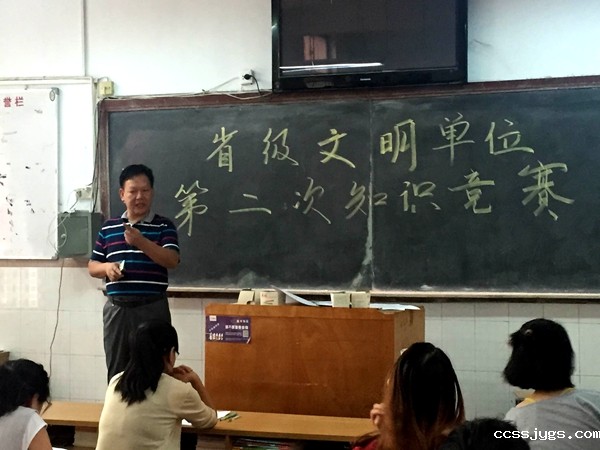 省级文明单位
第二次知识竞赛
誉栏
ccssjygs.com